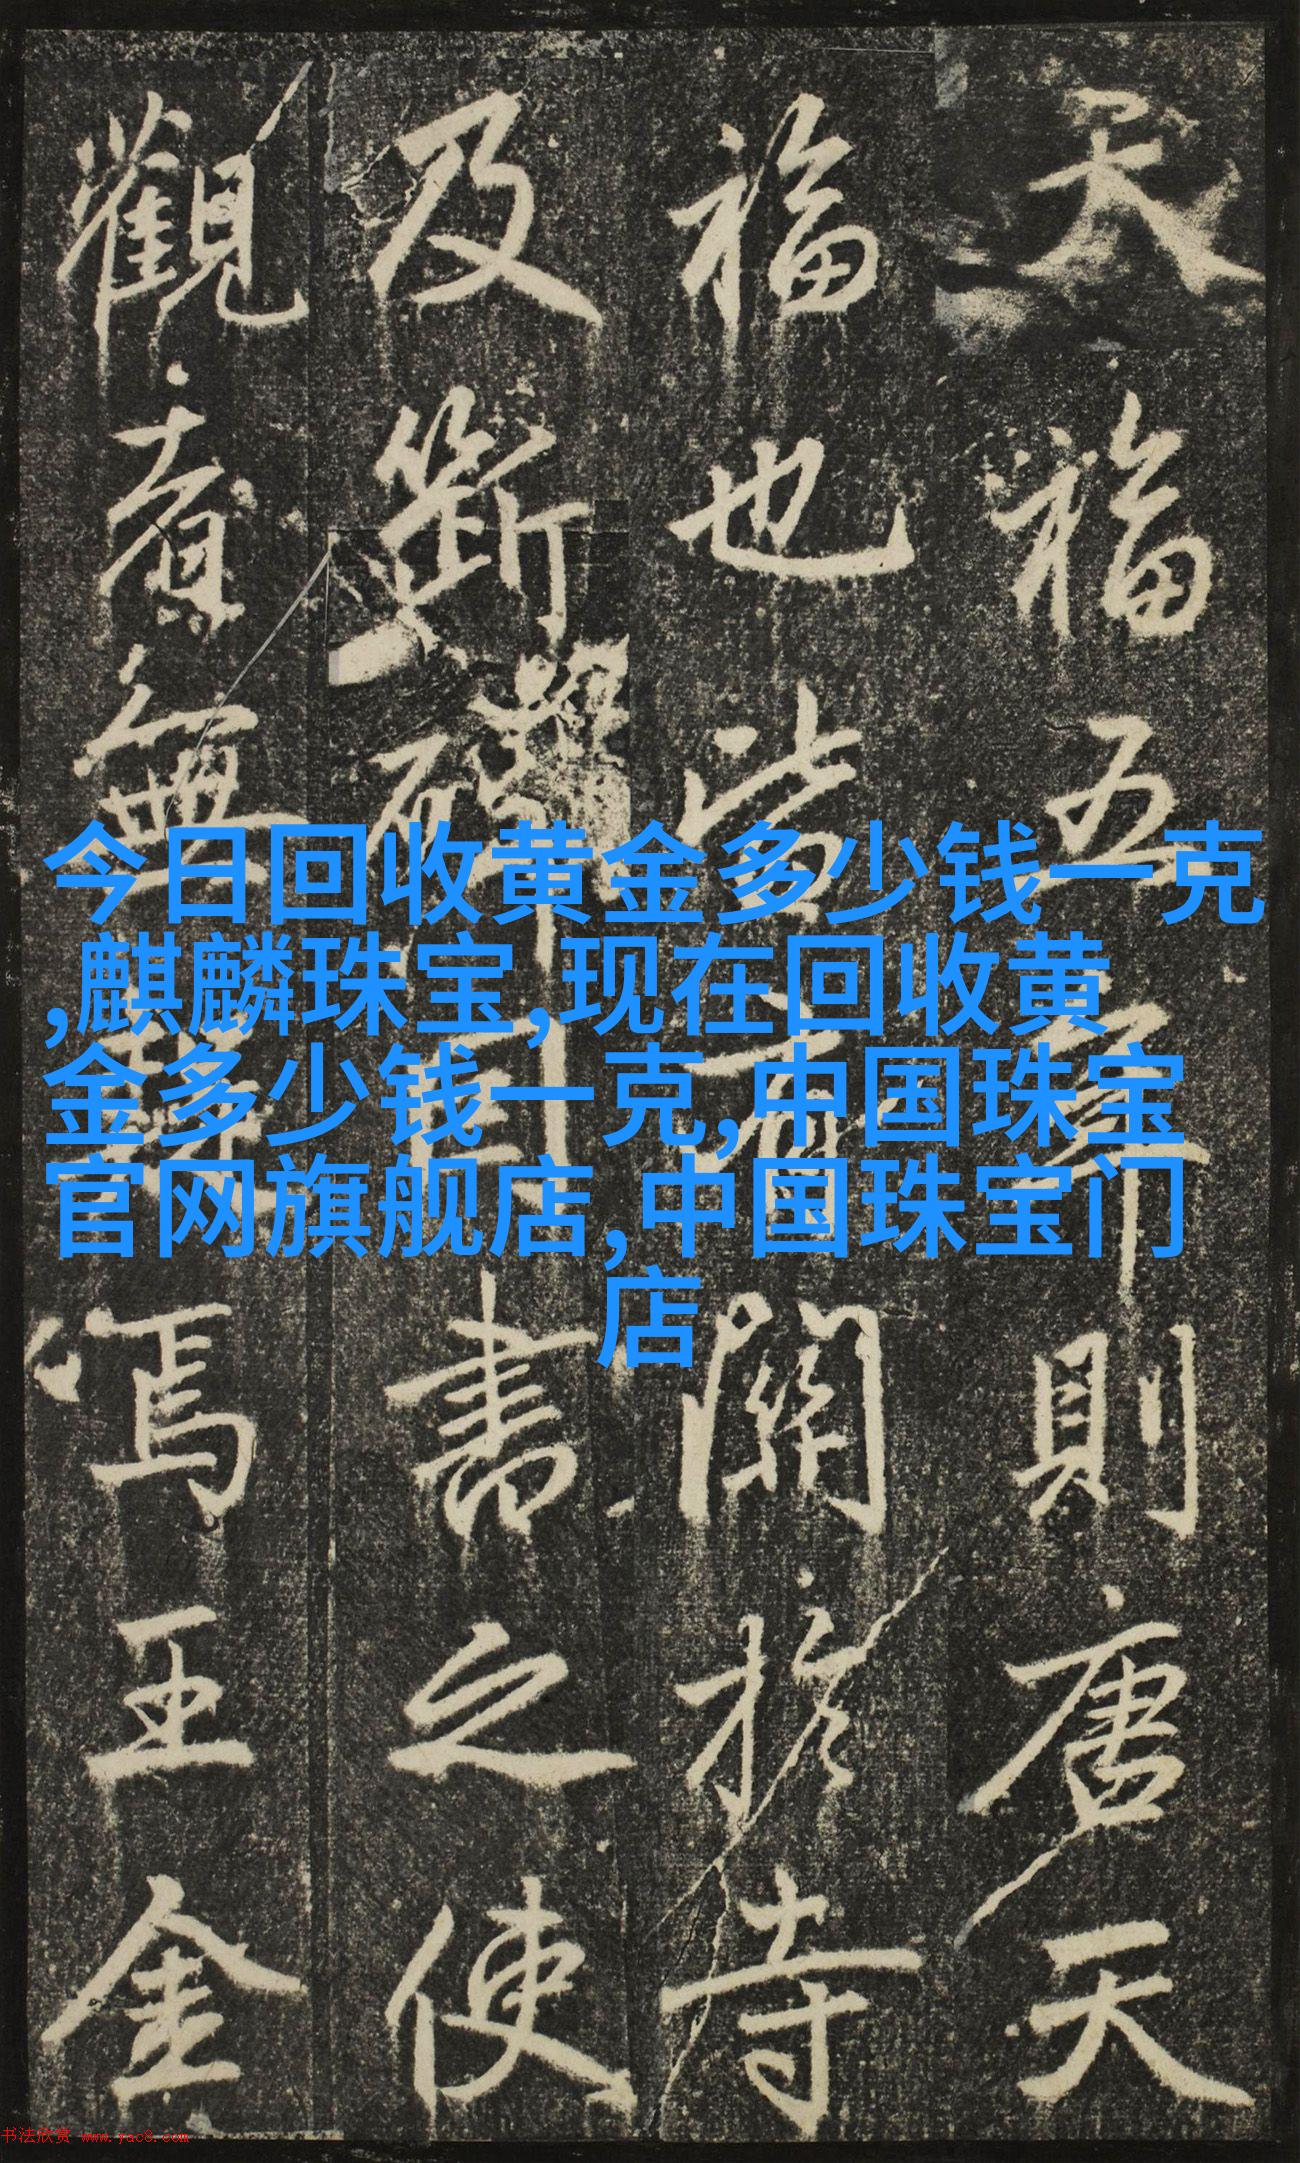 天福五年則唐天
福也當
關於寺
及斷碑
書之使
觀音無
焉王金
今日回收黄金多少钱一克
,麒麟珠宝,现在回收黄
金多少钱一克,中国珠宝
官网旗舰店,中国珠宝门
店
书法欣赏 www.yac8.com